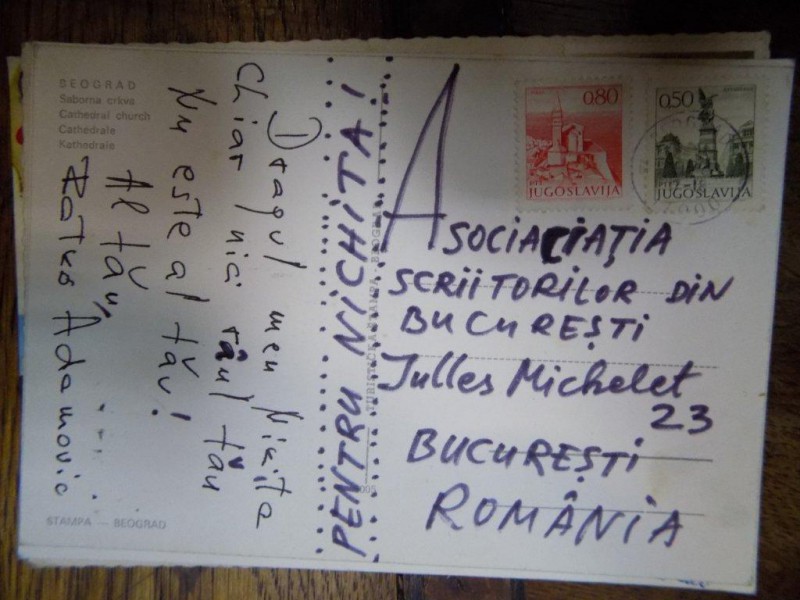 BEOGRAD
Saborna crkva
Cathedral church
Cathedrale
Kathedrale
Dragul meu Nikita
Chiar nici răul tău
Nu este al tău!
Al tău,
Zatko Adamovic
STAMPA — BEOGRAD
PENTRU NICHITA!
TURISTICKA STAMPA - BEOGRAD
0.80
JUGOSLAVIJA
0.50
JUGOSLAVIJA
ASOCIACIAȚIA
SCRIITORILOR DIN
BUCUREȘTI
Julles Michelet
23
BUCUREȘTI
ROMÂNIA